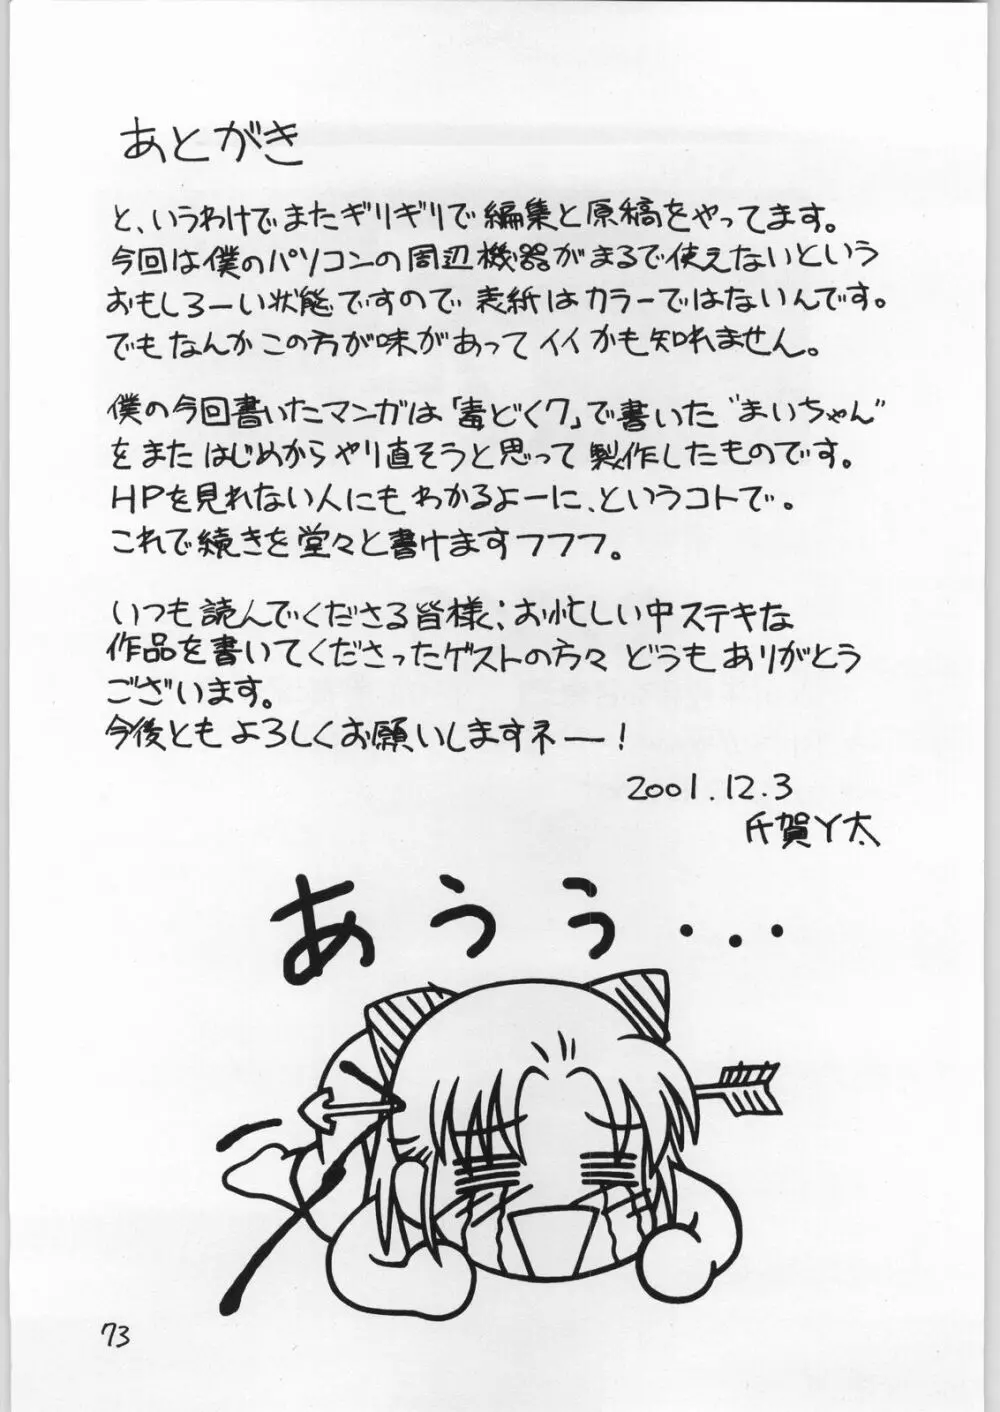 あとがき
と、いうわけでまたギリギリで編集と原稿をやってます。
今回は僕のパソコンの周辺機器がまるで使えないという
おもしろーい状態ですので表紙はカラーではないんです。
でもなんかこの方が味があってイイかも知れません。
僕の今回書いたマンガは「毒どく7」で書いた“まいちゃん”
をまたはじめからやり直そうと思って製作したものです。
HPを見れない人にもわかるよーに、というコトで。
これで続きを堂々と書けますフフフ。
いつも読んでくださる皆様、お忙しい中ステキな
作品を書いてくださったゲストの方々どうもありがとう
ございます。
今後ともよろしくお願いしますネー!
2001.12.3
氏賀Y太
あうぅ...
73